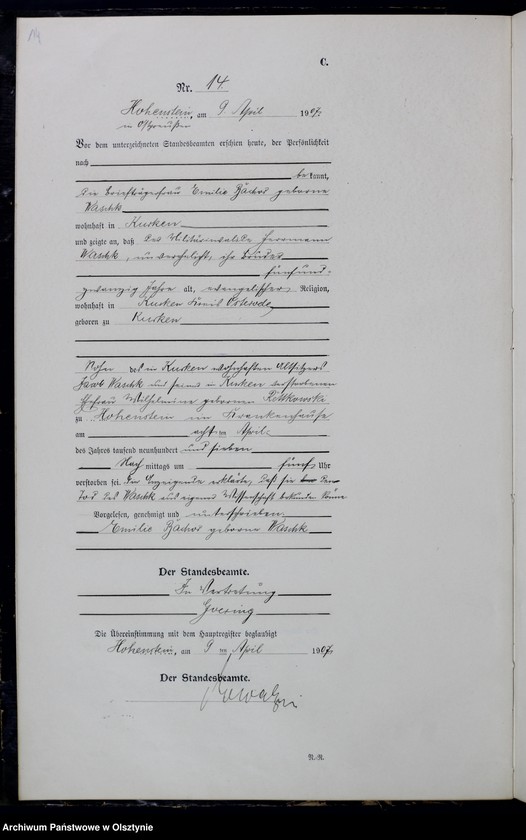 C.
Nr. 14.
Hohenstein, am 9. April 1907.
in Ostpreußen
Vor dem unterzeichneten Standesbeamten erschien heute, der Persönlichkeit
nach
be kannt,
die Briefträgerfrau Emilie geborene
Waschk
wohnhaft in Kurken
und zeigte an, daß der Militärinvalide Herrmann
Waschk, unverehelicht, ihr Bruder
fünfund-
zwanzig Jahre alt, evangelischer Religion,
wohnhaft in Kurken Kreis Osterode
geboren zu Kurken
Sohn des in Kurken wohnhaften Altsitzers
Jacob Waschk und seiner in Kurken verstorbenen
Ehefrau Wilhelmine geborenen
zu Hohenstein im Krankenhause
am achten April
des Jahres tausend neunhundert und sieben
Nach mittags um fünf Uhr
verstorben sei. Die Anzeigende erklärte, daß sie den
Tod des Waschk aus eigener Wissenschaft bekunden könne
Vorgelesen, genehmigt und unterschrieben
Emilie geborene Waschk
Der Standesbeamte.
In Vertretung
Die Übereinstimmung mit dem Hauptregister beglaubigt
Hohenstein, am 9 ten April 1907.
Der Standesbeamte.
N.-R.
Archiwum Państwowe w Olsztynie